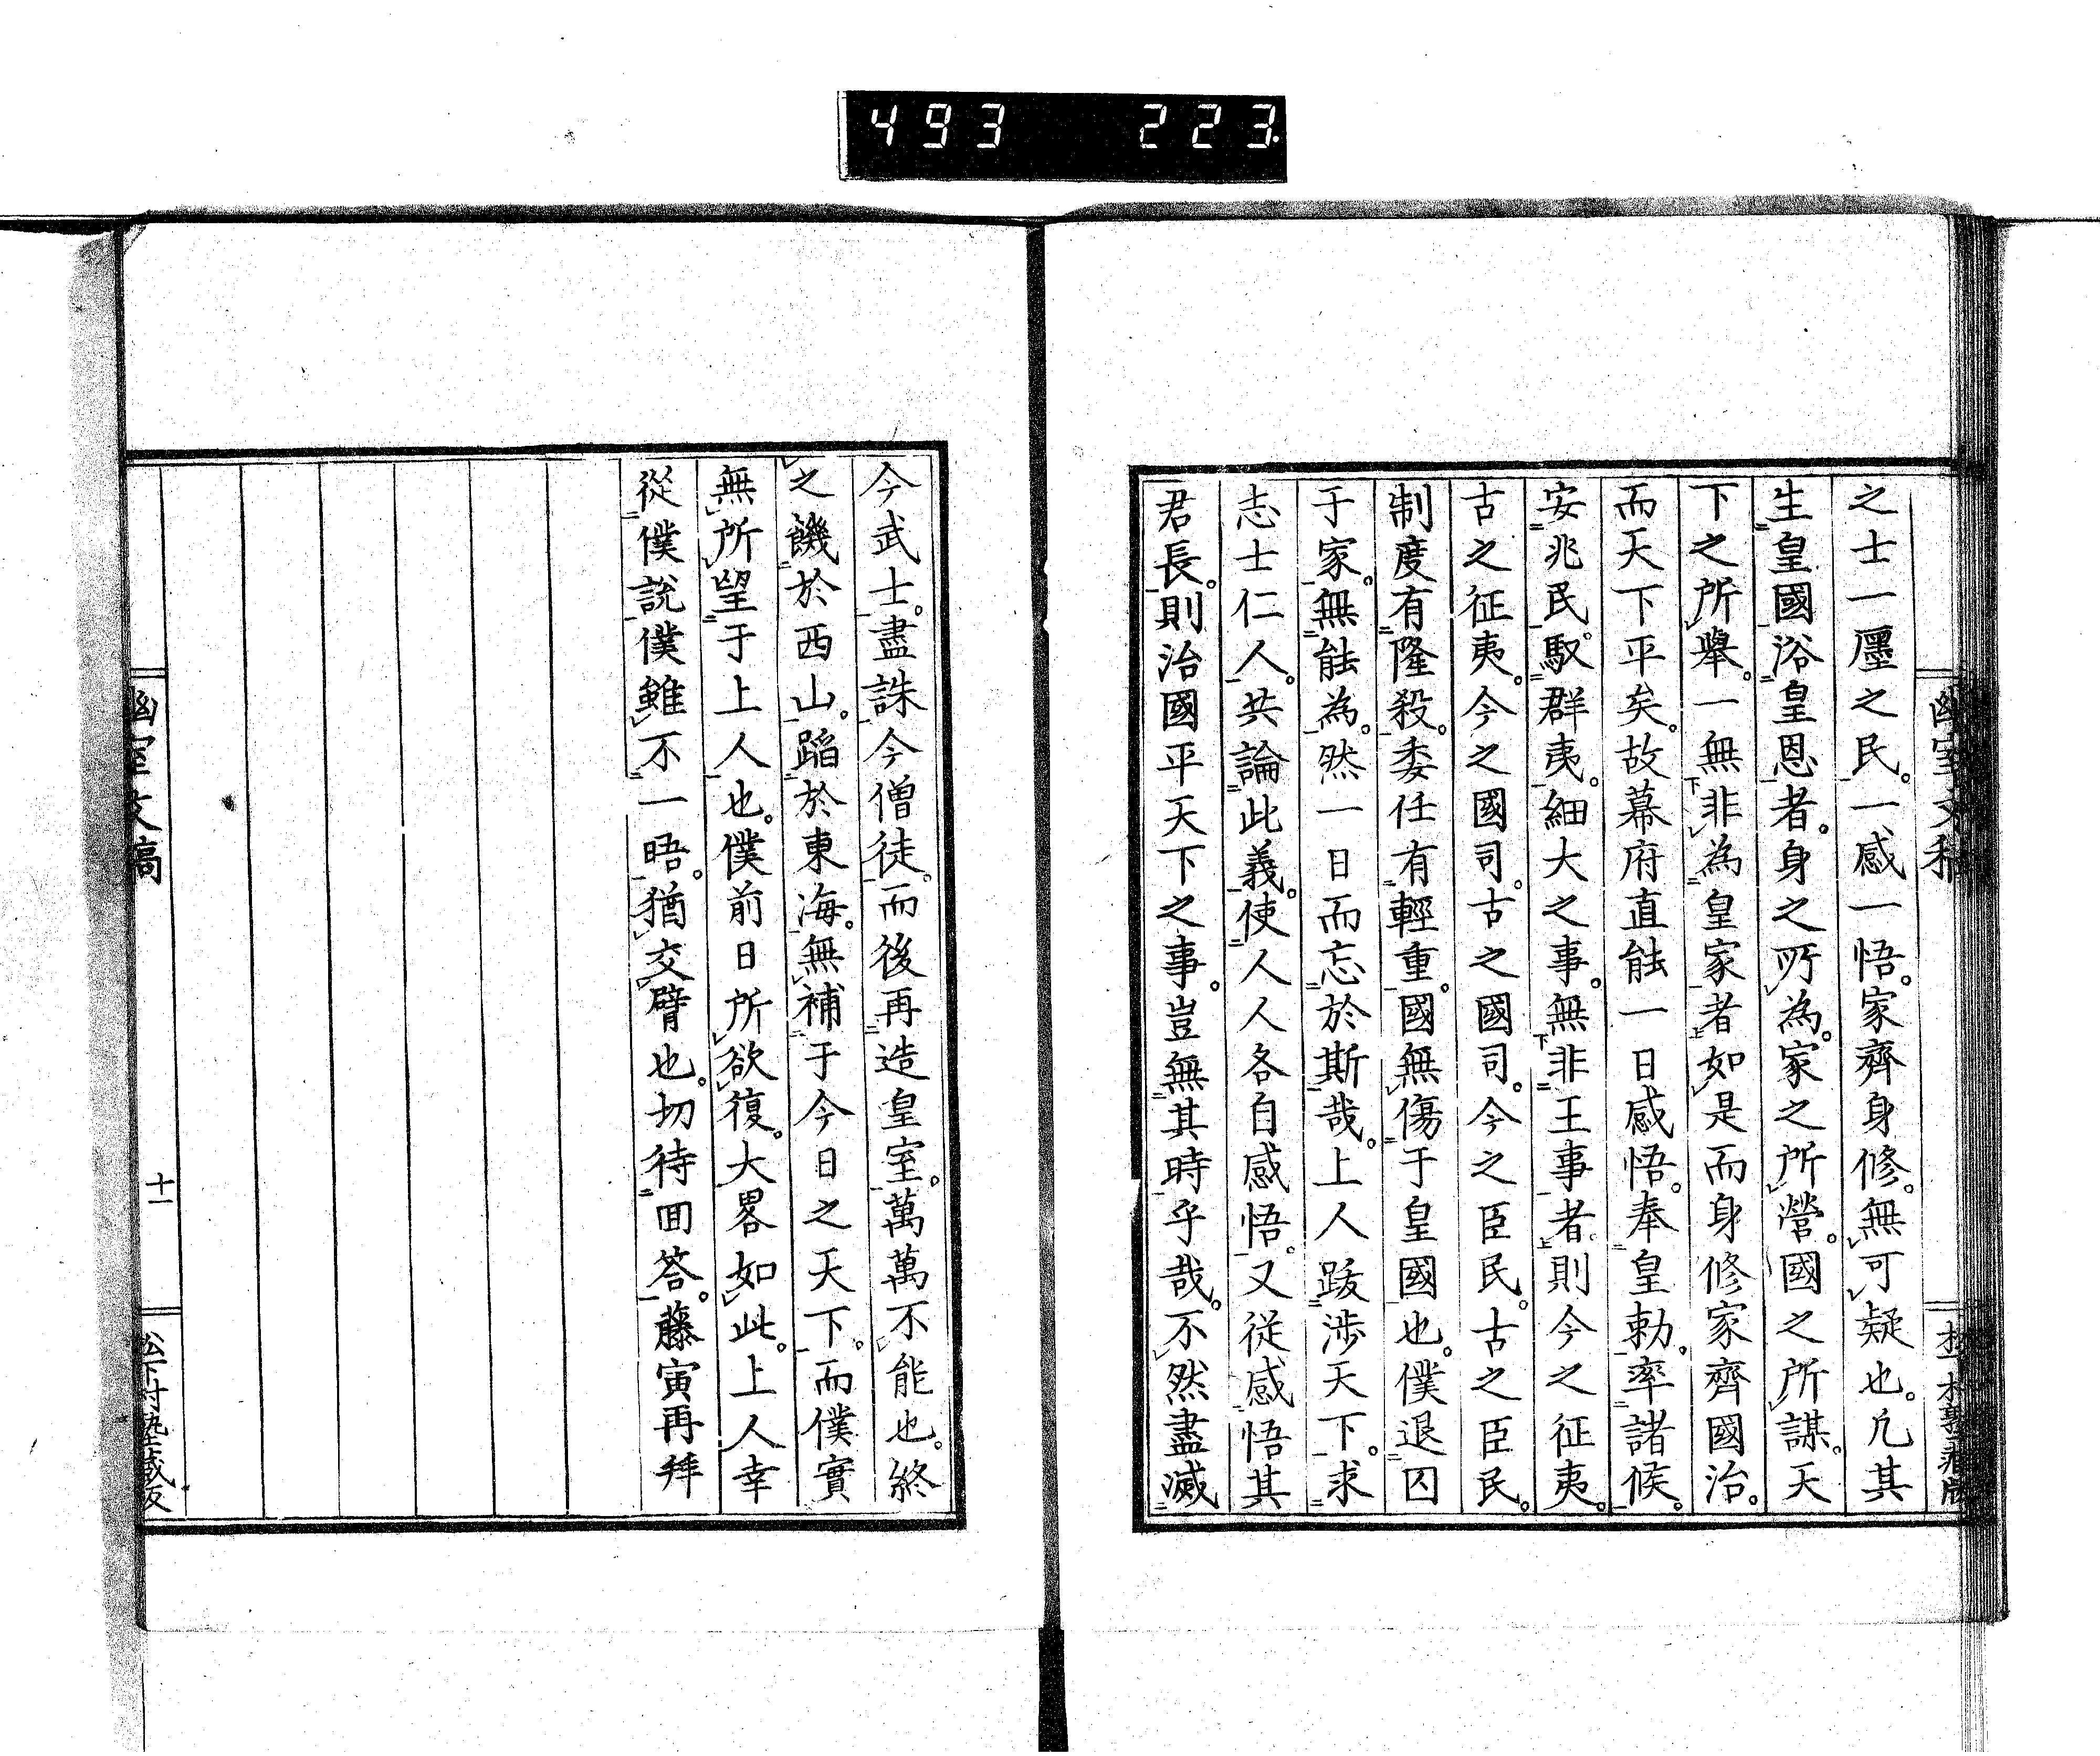 493 223
之士一廛之民。一感一悟。家齊身修。無可疑也。凢其
生皇國浴皇恩者。身之所為。家之所營。國之所謀。天
下之所擧。一無非為皇家者如是而身修家齊國治。
而天下平矣。故幕府直能一日感悟。奉皇勅。率諸候。
安兆民。馭群夷。細大之事。無非王事者。則今之征夷。
古之征夷。今之國司。古之國司。今之臣民。古之臣民。
制度有隆殺。委任有輕重。國無傷于皇國也。僕退囚
于家。無能為。然一日而忘於斯哉。上人跋涉天下。求
志士仁人。共論此義。使人人各自感悟。又從感悟其
君長。則治國平天下之事。豈無其時乎哉。不然盡滅
今武士。盡誅今僧徒。而後再造皇室。萬萬不能也。終
之饑於西山。蹈於東海。無補于今日之天下。而僕實
無所望于上人也。僕前日所欲復。大畧如此。上人幸
從僕說僕雖不一晤。猶交臂也。切待回答。藤寅再拜
幽室文稿
十一
松下村塾藏版